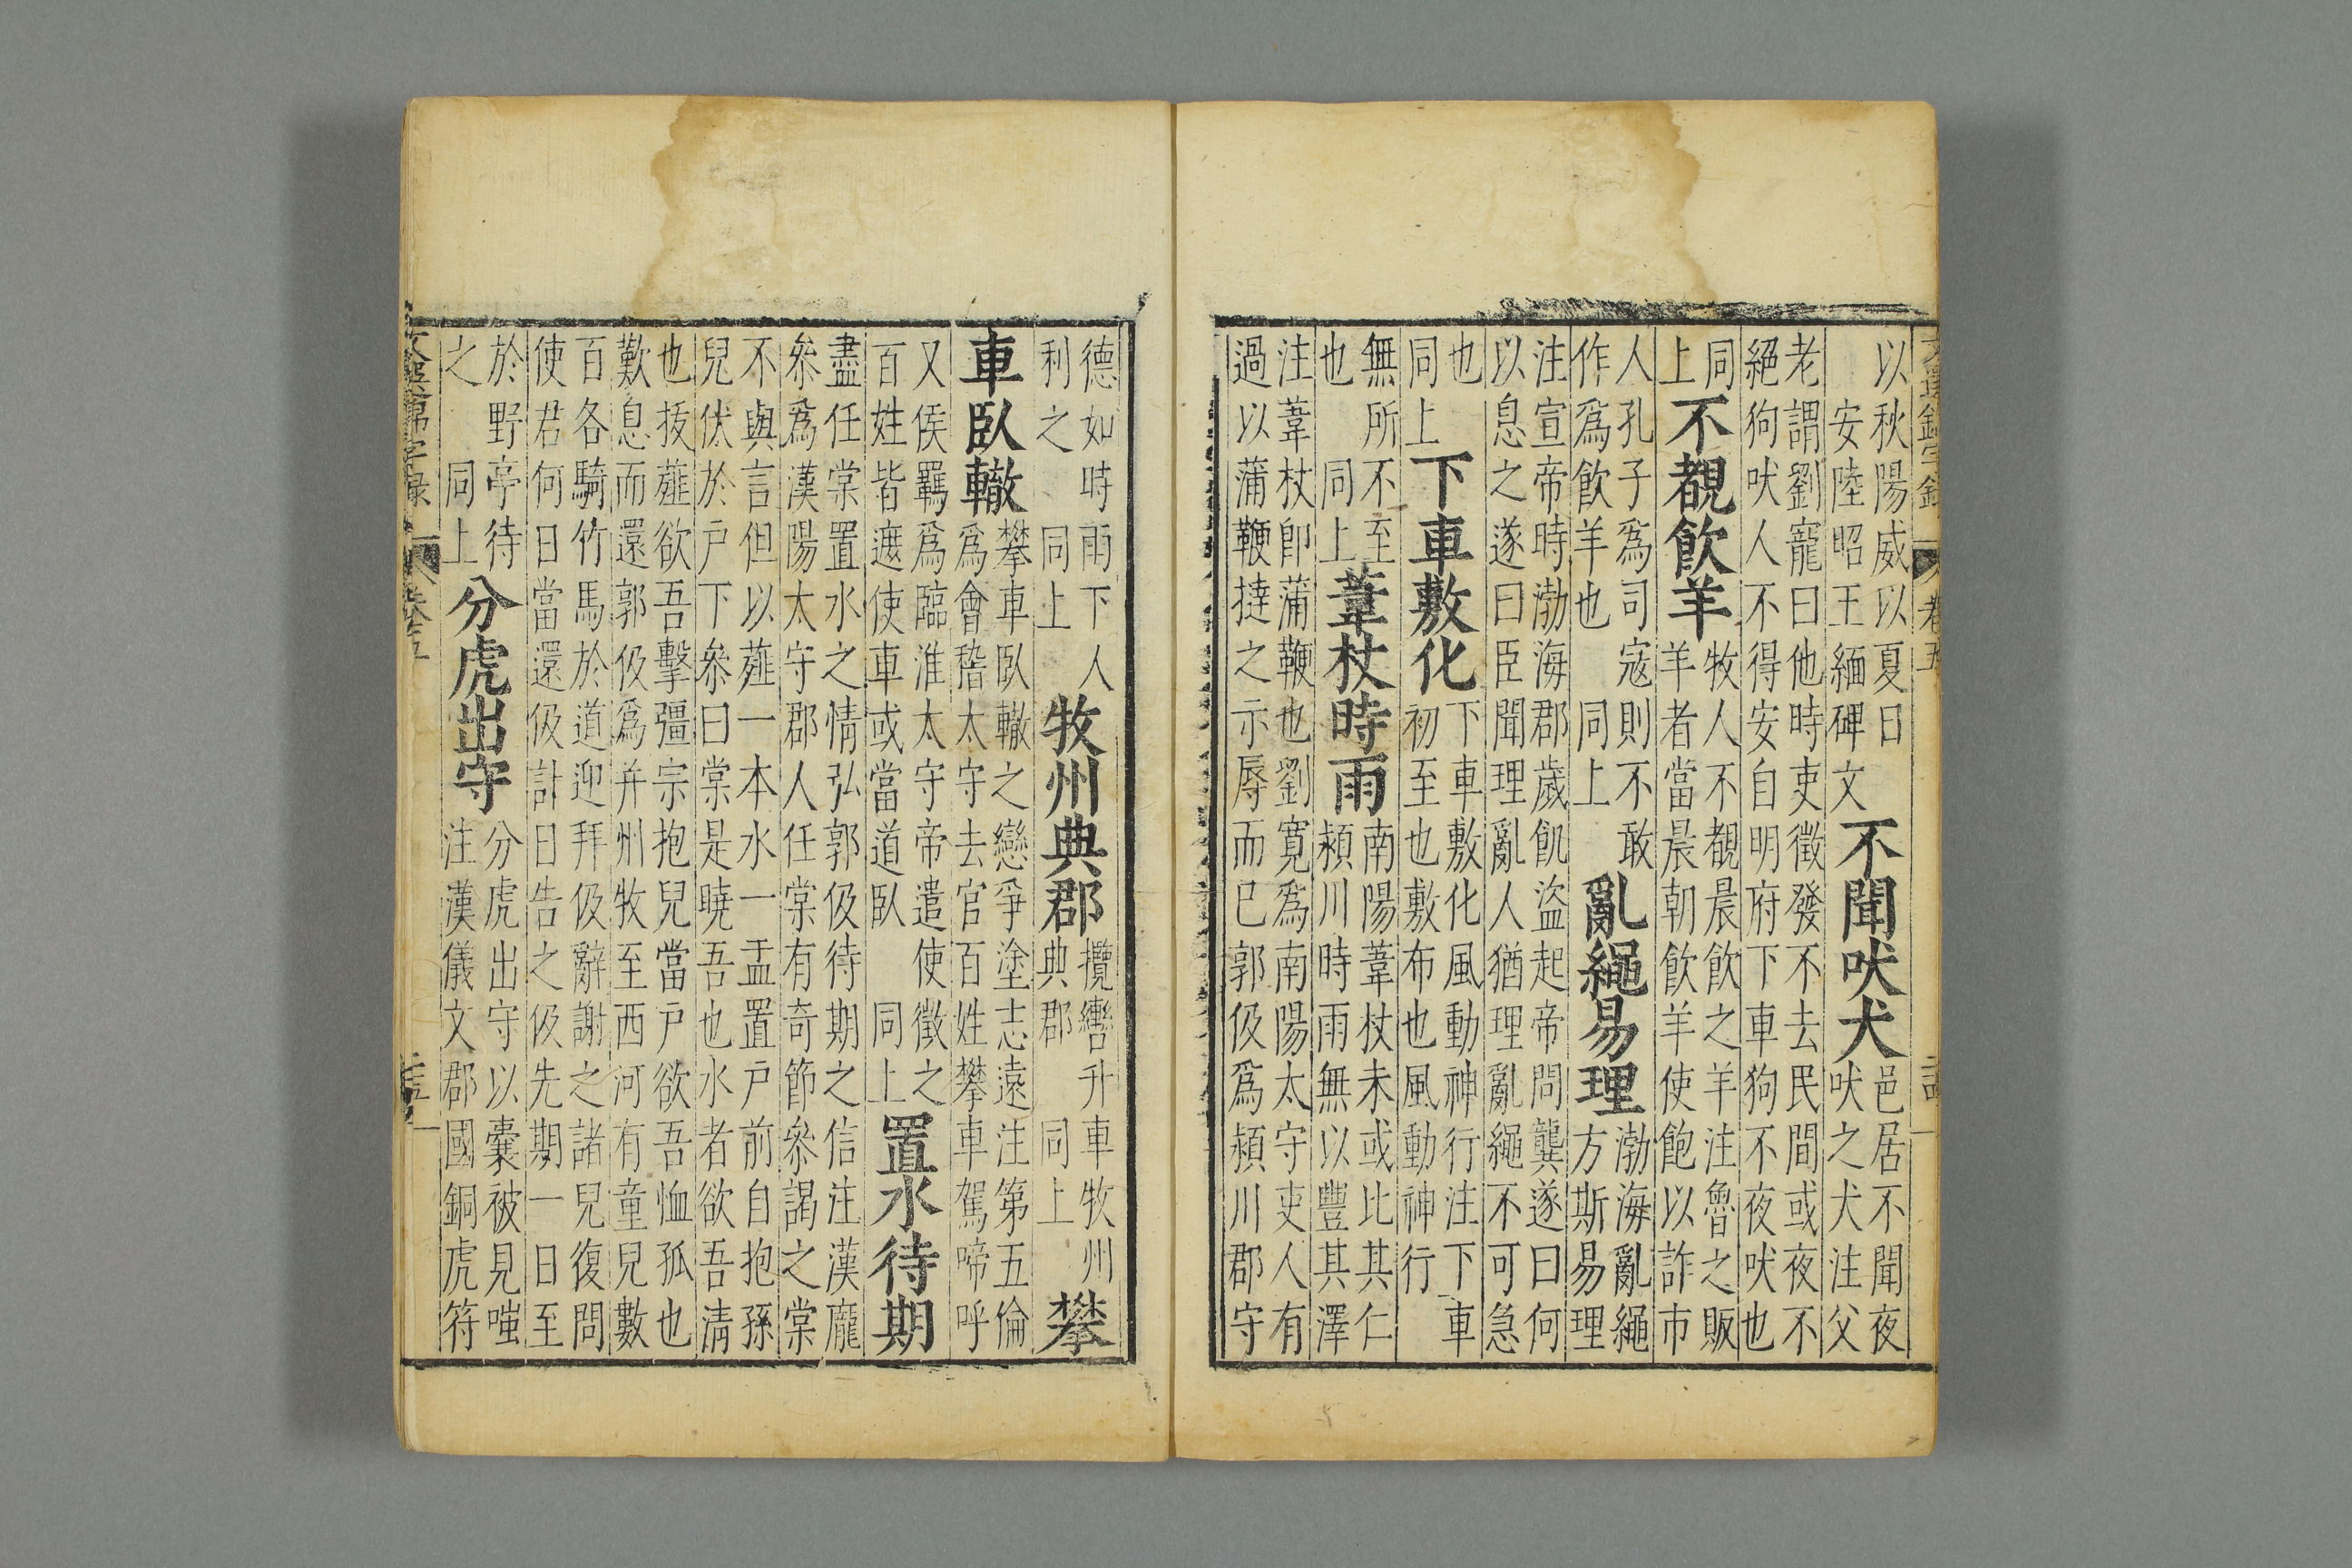 以秋陽威以夏日
安陸昭王緬碑文
不聞吠犬
邑居不聞夜
吠之犬注父
老謂劉寵曰他時吏徵發不去民間或夜不
絕狗吠人不得安自明府下車狗不夜吠也
同
上
不覩飲羊
牧人不覩晨飲之羊注魯之販
羊者當晨朝飲羊使飽以詐市
人孔子為司寇則不敢
作爲飲羊也 同上
亂繩易理
渤海亂繩
方斯易理
注宣帝時渤海郡歲飢盜起帝問龔遂曰何
以息之遂曰臣聞理亂人猶理亂繩不可急
也
同上
下車敷化
下車敷化風動神行注下車
初至也敷布也風動神行
無所不至
也 同上
葦杖時雨
南陽葦杖未或比其仁
潁川時雨無以豐其澤
注葦杖卽蒲鞭也劉寬爲南陽太守吏人有
過以蒲鞭撻之示辱而已郭伋爲潁川郡守
德如時雨下人
利之 同上
牧州典郡
攬轡升車牧州
典郡 同上
攀
車臥轍
攀車臥轍之戀爭塗忘遠注第五倫
爲會稽太守去官百姓攀車駕啼呼
又侯羈爲臨淮太守帝遣使徵之
百姓皆遮使車或當道臥 同上
置水待期
盡任棠置水之情弘郭伋待期之信注漢龐
叅爲漢陽太守郡人任棠有奇節叅謁之棠
不與言但以薤一本水一盂置戶前自抱孫
兒伏於戶下叅曰棠是曉吾也水者欲吾清
也拔薤欲吾擊彊宗抱兒當戶欲吾恤孤也
歎息而還郭伋爲并州牧至西河有童兒數
百各騎竹馬於道迎拜伋辭謝之諸兒復問
使君何日當還伋計日告之伋先期一日至
於野亭待
之 同上
分虎出守
分虎出守以囊被見嗤
注漢儀文郡國銅虎符
卷五